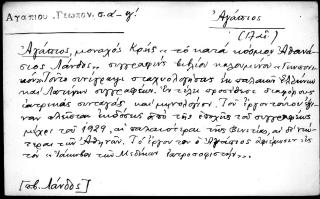 Αγαπίου. Γεωπον. σ.α-θ'.
Ἀγάπιος
Ἀγάπιος, μοναχός Κρής «τὸ κατὰ κόσμον Ἀθανά-
σιος Λάνδος» συγγραφεὺς βιβλίου καλουμένου «Γεωπονι-
κόν». Τοῦτο συνέγραψε σταχυολογήσας ἐκ παλαιῶν Ἑλλήνων
καὶ Λατίνων συγγραφέων. Ἐν τέλει προσέθηκε διαφόρους
ἰατρικὰς συνταγὰς, καὶ μηνολόγιον. Τοῦ ἔργου τούτου ἔγι-
ναν πλεῖσται ἐκδόσεις ἀπὸ τῆς ἐποχῆς τοῦ συγγραφέως
μέχρι τοῦ 1929, αἱ παλαιότεραι τῆς Βενετίας, αἱ δὲ νεώ-
τεραι τῶν Ἀθηνῶν. Τὸ ἔργον του ὁ Ἀγάπιος ἀφιέρωσε εἰς
τὸν
[πβ. Λάνδος]